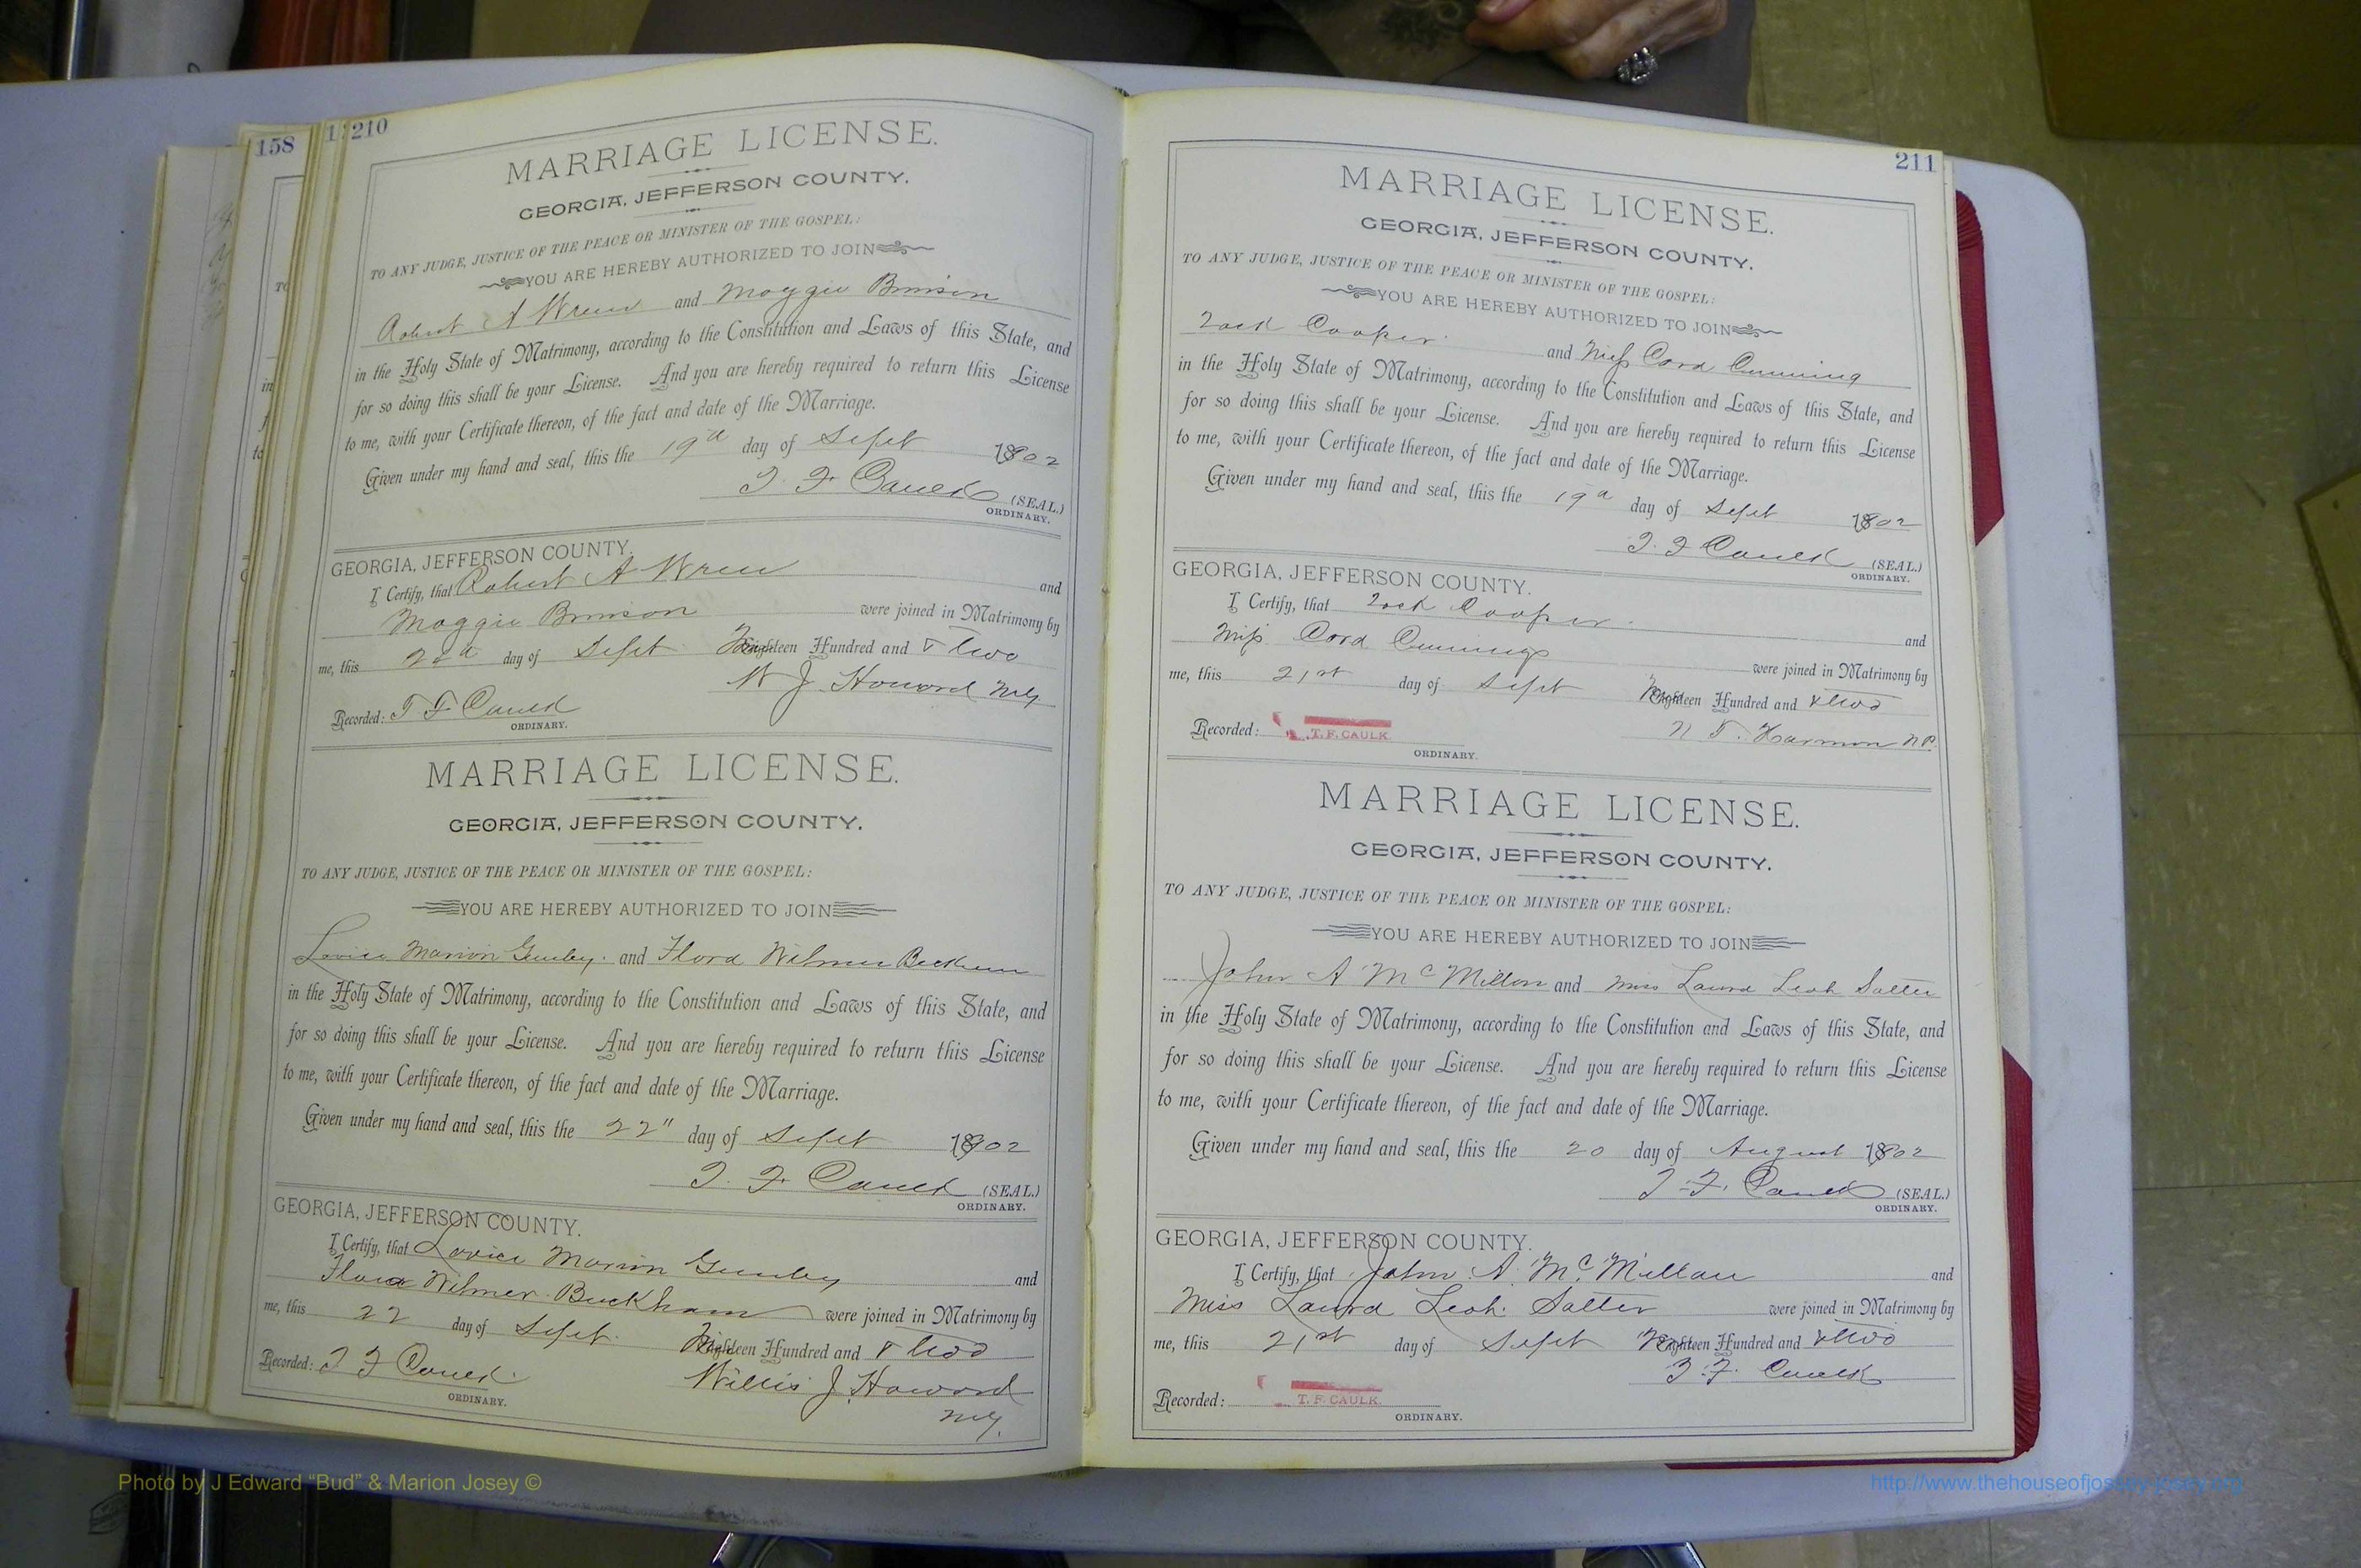 158
210
MARRIAGE LICENSE.
GEORGIA, JEFFERSON COUNTY.
TO ANY JUDGE, JUSTICE OF THE PEACE OR MINISTER OF THE GOSPEL:
YOU ARE HEREBY AUTHORIZED TO JOIN
Robert A Wren and Maggie Brinson
in the Holy State of Matrimony, according to the Constitution and Laws of this State, and
for so doing this shall be your License. And you are hereby required to return this License
to me, with your Certificate thereon, of the fact and date of the Marriage.
Given under my hand and seal, this the 19 day of Sept 1902
T. F. Caulk (SEAL.)
ORDINARY.
GEORGIA, JEFFERSON COUNTY.
I Certify, that Robert A Wren and
Maggie Brinson were joined in Matrimony by
me, this day of Sept Hundred and two
W J. Howard
Recorded: T F Caulk
ORDINARY.
MARRIAGE LICENSE.
GEORGIA, JEFFERSON COUNTY.
TO ANY JUDGE, JUSTICE OF THE PEACE OR MINISTER OF THE GOSPEL:
YOU ARE HEREBY AUTHORIZED TO JOIN
Marion and Flora Wilmer
in the Holy State of Matrimony, according to the Constitution and Laws of this State, and
for so doing this shall be your License. And you are hereby required to return this License
to me, with your Certificate thereon, of the fact and date of the Marriage.
Given under my hand and seal, this the 22" day of Sept 1902
T. F. Caulk (SEAL.)
ORDINARY.
GEORGIA, JEFFERSON COUNTY.
I Certify, that Marion and
Flora Wilmer Buckham were joined in Matrimony by
me, this 22 day of Sept. Hundred and two
Willis J. Howard
Recorded: T F Caulk
ORDINARY.
211
MARRIAGE LICENSE.
GEORGIA, JEFFERSON COUNTY.
TO ANY JUDGE, JUSTICE OF THE PEACE OR MINISTER OF THE GOSPEL:
YOU ARE HEREBY AUTHORIZED TO JOIN
Zack Cooper and Miss Cora Cumming
in the Holy State of Matrimony, according to the Constitution and Laws of this State, and
for so doing this shall be your License. And you are hereby required to return this License
to me, with your Certificate thereon, of the fact and date of the Marriage.
Given under my hand and seal, this the 19 day of Sept 1902
T. F Caulk (SEAL.)
ORDINARY.
GEORGIA, JEFFERSON COUNTY.
I Certify, that Zack Cooper and
Miss Cora Cummings were joined in Matrimony by
me, this 21st day of Sept Hundred and two
N T. Harmon N.P.
Recorded: T. F. CAULK.
ORDINARY.
MARRIAGE LICENSE.
GEORGIA, JEFFERSON COUNTY.
TO ANY JUDGE, JUSTICE OF THE PEACE OR MINISTER OF THE GOSPEL:
YOU ARE HEREBY AUTHORIZED TO JOIN
John A McMillan and Miss Laura Leah Salter
in the Holy State of Matrimony, according to the Constitution and Laws of this State, and
for so doing this shall be your License. And you are hereby required to return this License
to me, with your Certificate thereon, of the fact and date of the Marriage.
Given under my hand and seal, this the 20 day of August 1902
T. F. Caulk (SEAL.)
ORDINARY.
GEORGIA, JEFFERSON COUNTY.
I Certify, that John A. McMillan and
Miss Laura Leah Salter were joined in Matrimony by
me, this 21st day of Sept Hundred and two
T. F. Caulk
Recorded: T. F. CAULK.
ORDINARY.
Photo by J Edward “Bud” & Marion Josey ©
http://www.thehouseofjossey-josey.org